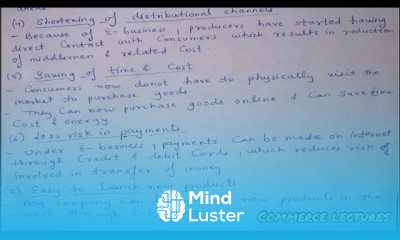 (4) Shortening of distributional channels
- Because of E-business, producers have started having
direct contact with consumers which results in reduction
of middlemen & related cost.
(5) Saving of time & Cost
- Consumers now donot have to physically visit the
market to purchase goods
- They Can now purchase goods online & Can save time
Cost & energy.
(6) Less risk in payments
- Under E-business, payments Can be made on internet
through Credit & debit Cards, which reduces risk of
involved in transfer of money
(7) Easy to launch new products
- Any Company Can new products in the
market through
Mind
Luster
COMMERCE LECTURES